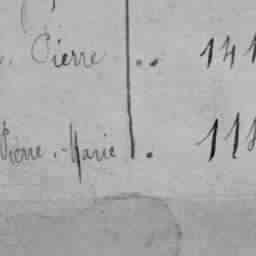 Pierre .. 141
Pierre-Marie . 118